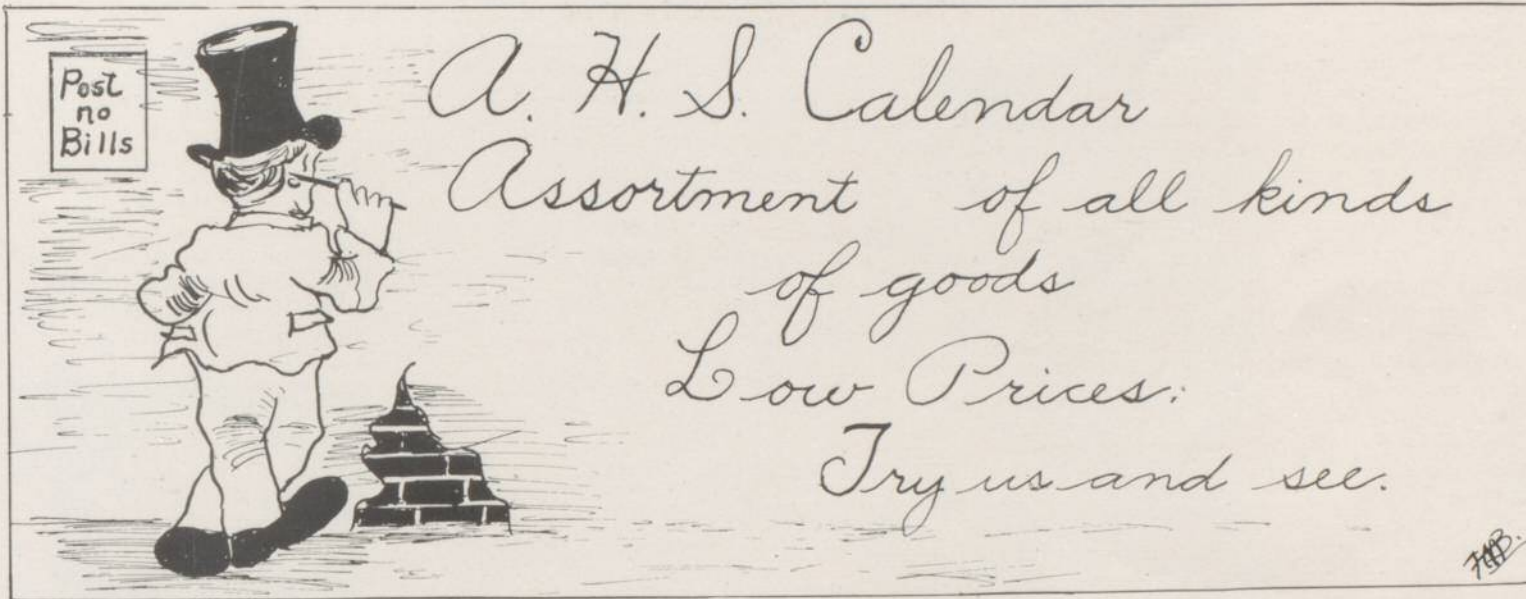 Post
no
Bills
A. H. S. Calendar
Assortment of all kinds
of goods
Low Prices:
Try us and see.